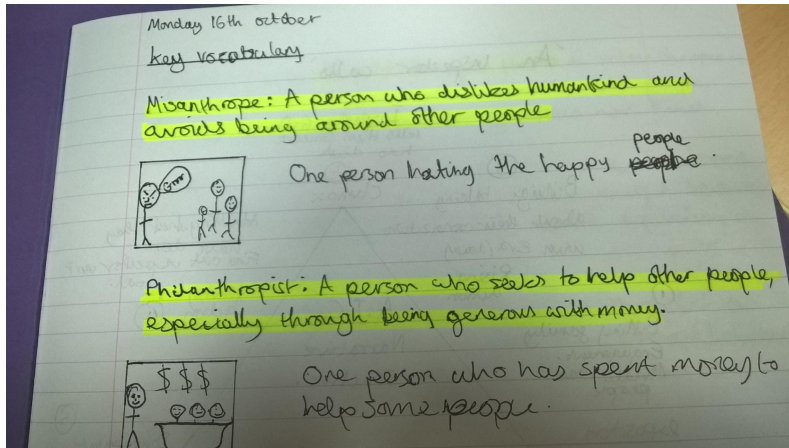 Monday 16th october
key vocabulary
Misanthrope: A person who dislikes humankind and
avoids being around other people
Grrr
people
One person hating the happy people.
Philanthropist: A person who seeks to help other people,
especially through being generous with money.
$ $ $
One person who has spent money to
help some people.